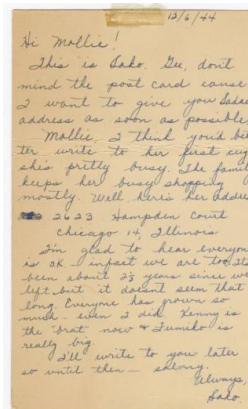 12/6/44
Hi Mollie!
This is Sako. Gee, dont
mind the post card cause
I want to give you Sada's
address as soon as possible
Mollie, I think you'd bet-
ter write to her first cuz
she's pretty busy. The family
keeps her busy shopping
mostly. Well here's her address
2623 Hampden Court
Chicago 14, Illinois
I'm glad to hear everyone
is OK - infact we are too. It's
been about 2½ years since we
left but it doesnt seem that
long. Everyone has grown so
much - even I did. Kenny is
the "brat" now & Fumiko is
really big.
I'll write to you later
so until then -
Always,
Sako.